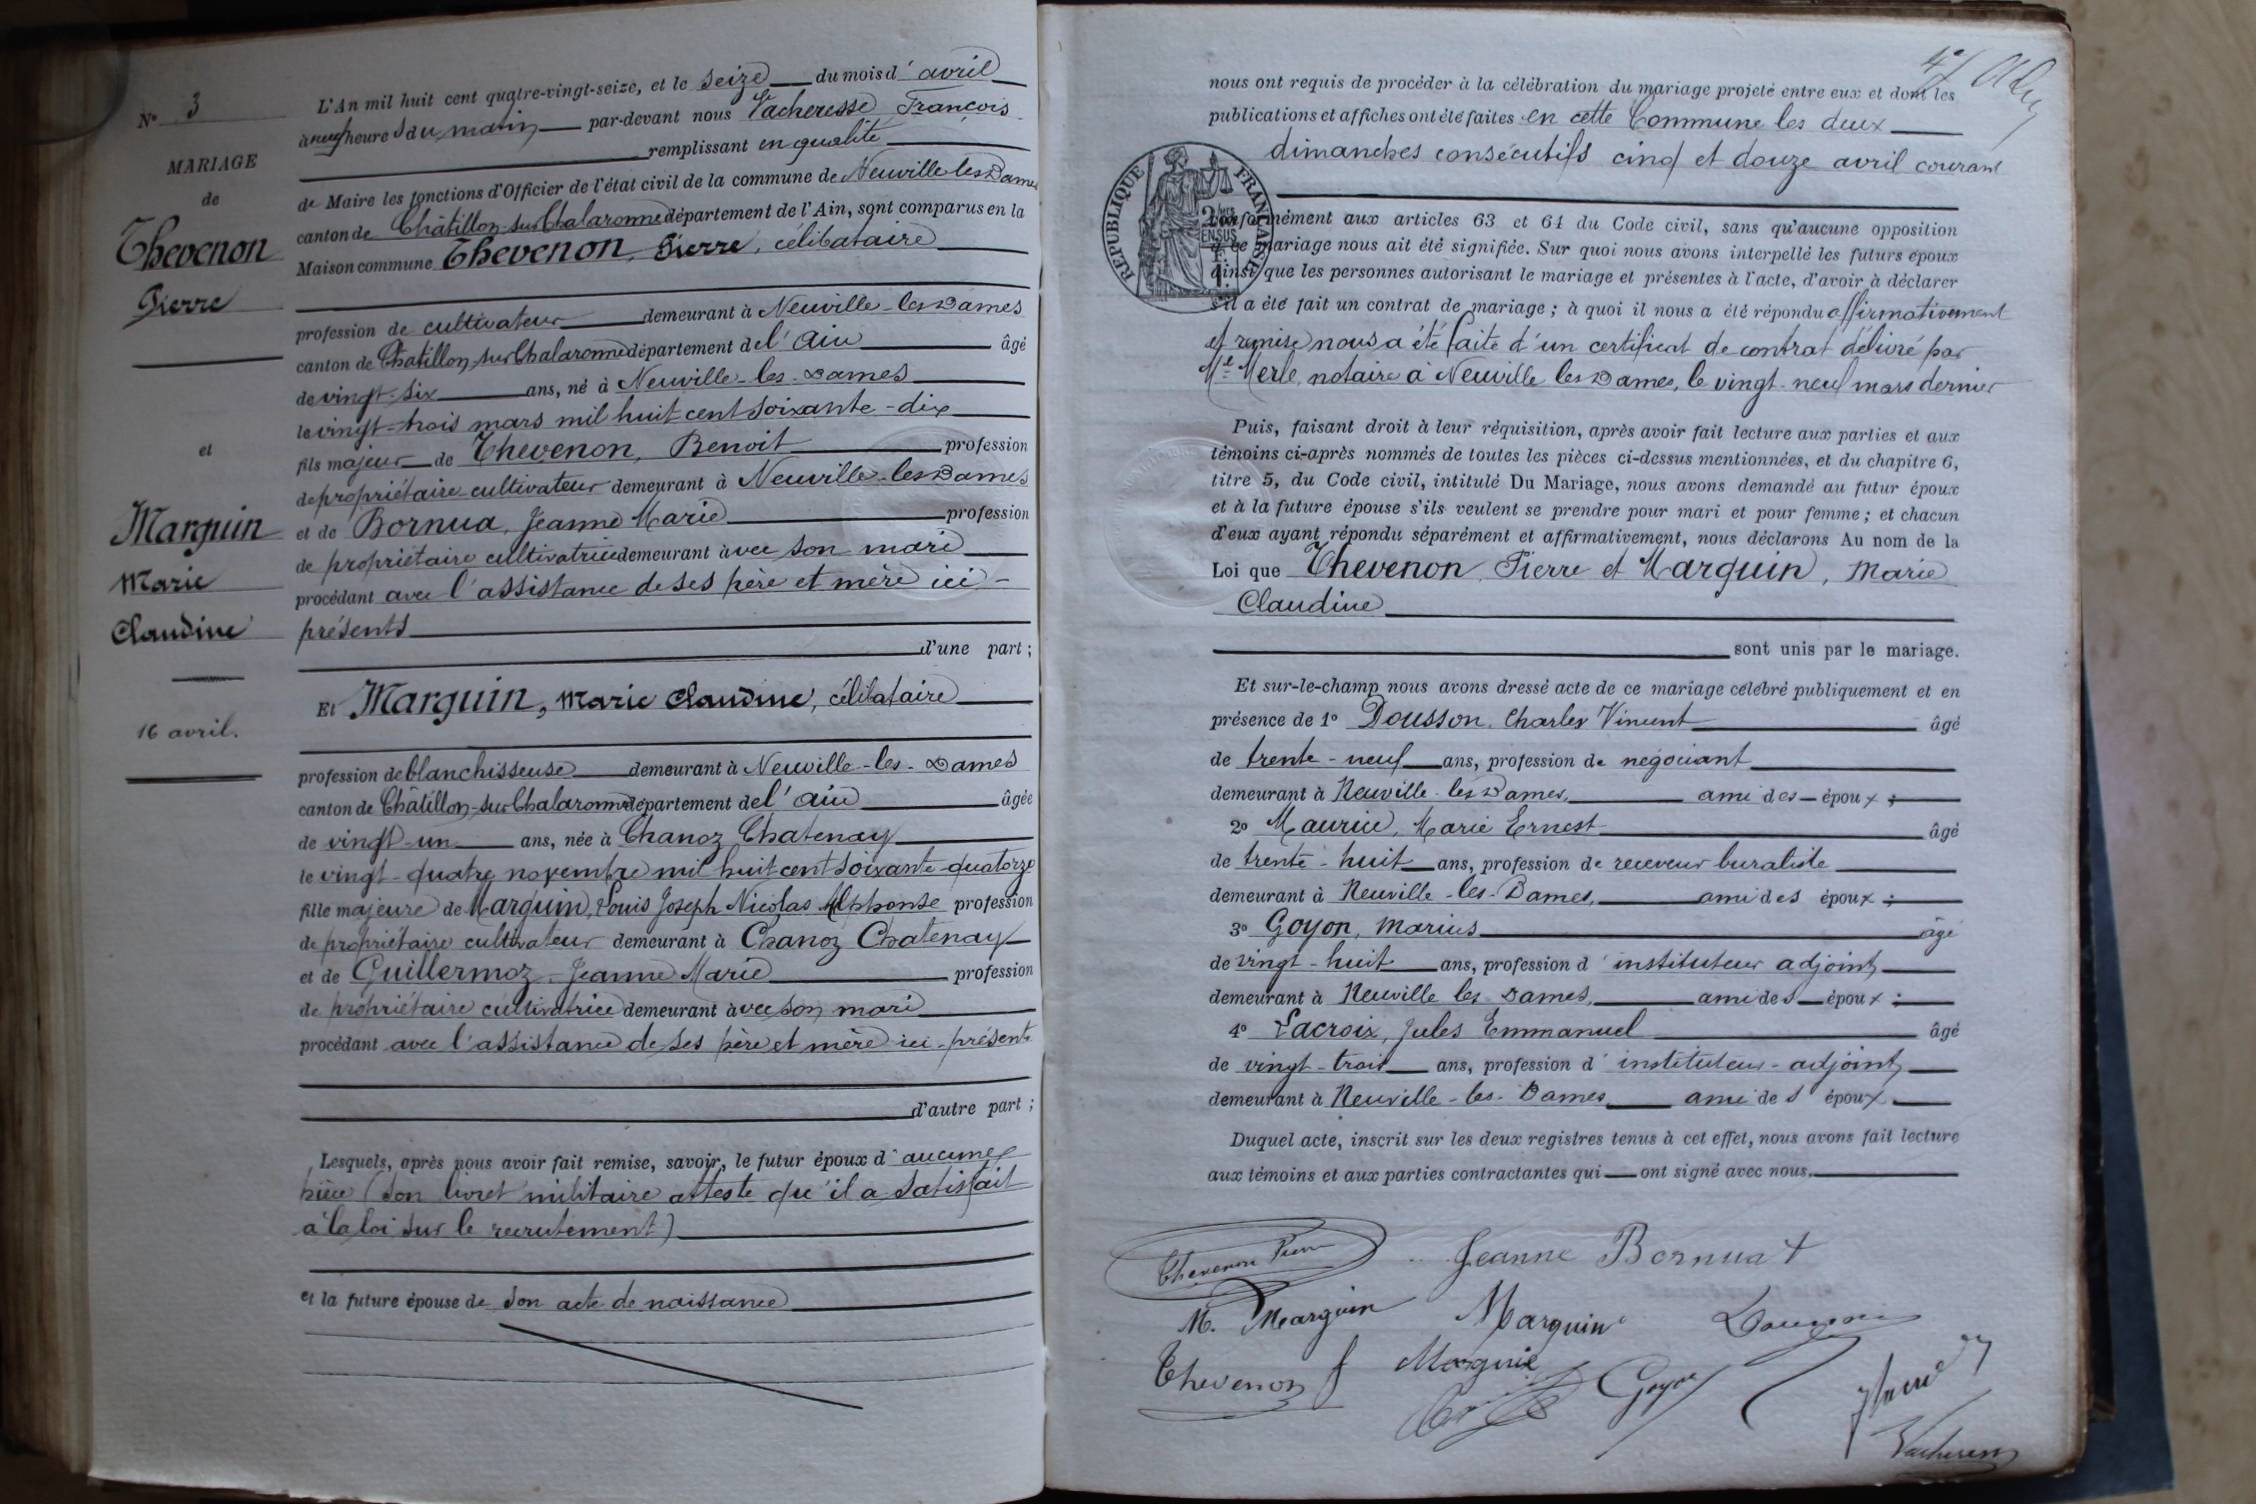 N° 3
MARIAGE
de
Thevenon
Pierre
et
Marguin
Marie
Claudine
16 avril.
L'An mil huit cent quatre-vingt-seize, et le seize du mois d'avril
à neuf heures du matin par-devant nous Vacheresse, François
remplissant en qualité
de Maire les fonctions d'Officier de l'état civil de la commune de Neuville les Dames
canton de Châtillon-sur-Chalaronne département de l'Ain, sont comparus en la
Maison commune Thevenon, Pierre, célibataire
profession de cultivateur demeurant à Neuville-les-Dames
canton de Châtillon-sur-Chalaronne département de l'Ain âgé
de vingt-six ans, né à Neuville-les-Dames
le vingt-trois mars mil huit cent soixante-dix
fils majeur de Thevenon, Benoit profession
de propriétaire cultivateur demeurant à Neuville-les Dames
et de Bornua, Jeanne Marie profession
de propriétaire cultivatrice demeurant avec son mari
procédant avec l'assistance de ses père et mère ici-
présents
d'une part ;
Et Marguin, Marie Claudine, célibataire
profession de blanchisseuse demeurant à Neuville-les-Dames
canton de Châtillon-sur-Chalaronne département de l'Ain âgée
de vingt-un ans, née à Chanoz Chatenay
le vingt-quatre novembre mil huit cent soixante-quatorze
fille majeure de Marguin, Louis Joseph Nicolas Alphonse profession
de propriétaire cultivateur demeurant à Chanoz Chatenay
et de Guillermoz, Jeanne Marie profession
de propriétaire cultivatrice demeurant avec son mari
procédant avec l'assistance de ses père et mère ici-présents
d'autre part ;
Lesquels, après nous avoir fait remise, savoir, le futur époux d'aucune
pièce (son livret militaire atteste qu'il a satisfait
à la loi sur le recrutement)
et la future épouse de son acte de naissance
nous ont requis de procéder à la célébration du mariage projeté entre eux et dont les
publications et affiches ont été faites en cette Commune les deux
dimanches consécutifs cinq et douze avril courant
RÉPUBLIQUE FRANÇAISE
conformément aux articles 63 et 64 du Code civil, sans qu'aucune opposition
à ce mariage nous ait été signifiée. Sur quoi nous avons interpellé les futurs époux
ainsi que les personnes autorisant le mariage et présentes à l'acte, d'avoir à déclarer
s'il a été fait un contrat de mariage ; à quoi il nous a été répondu affirmativement
et remise nous a été faite d'un certificat de contrat délivré par
Me Merle, notaire à Neuville les Dames, le vingt-neuf mars dernier
Puis, faisant droit à leur réquisition, après avoir fait lecture aux parties et aux
témoins ci-après nommés de toutes les pièces ci-dessus mentionnées, et du chapitre 6,
titre 5, du Code civil, intitulé Du Mariage, nous avons demandé au futur époux
et à la future épouse s'ils veulent se prendre pour mari et pour femme ; et chacun
d'eux ayant répondu séparément et affirmativement, nous déclarons Au nom de la
Loi que Thevenon, Pierre et Marguin, Marie
Claudine
sont unis par le mariage.
Et sur-le-champ nous avons dressé acte de ce mariage célébré publiquement et en
présence de 1° Dousson, Charles Vincent âgé
de trente-neuf ans, profession de négociant
demeurant à Neuville-les Dames, ami des époux ;
2° Maurice, Marie Ernest âgé
de trente-huit ans, profession de receveur buraliste
demeurant à Neuville-les-Dames, ami des époux ;
3° Goyon, Marius âgé
de vingt-huit ans, profession d'instituteur adjoint
demeurant à Neuville les Dames, ami des époux ;
4° Lacroix, Jules Emmanuel âgé
de vingt-trois ans, profession d'instituteur-adjoint
demeurant à Neuville-les-Dames ami des époux
Duquel acte, inscrit sur les deux registres tenus à cet effet, nous avons fait lecture
aux témoins et aux parties contractantes qui ont signé avec nous.
Thevenon Pierre Jeanne Bornuat
M. Marguin Marguin
Thevenon Marguin Goyon